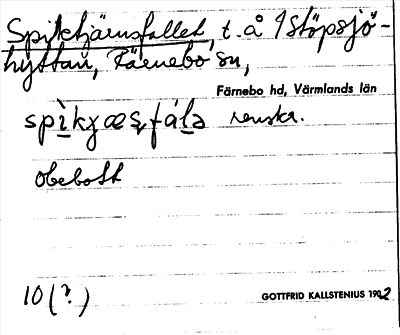 Spiktjärnsfallet, t. å Stöpsjö-
hyttan, Färnebo sn,
Färnebo hd, Värmlands län
spìkχæṣfálə
obebott
10 (?)
GOTTFRID KALLSTENIUS 1902